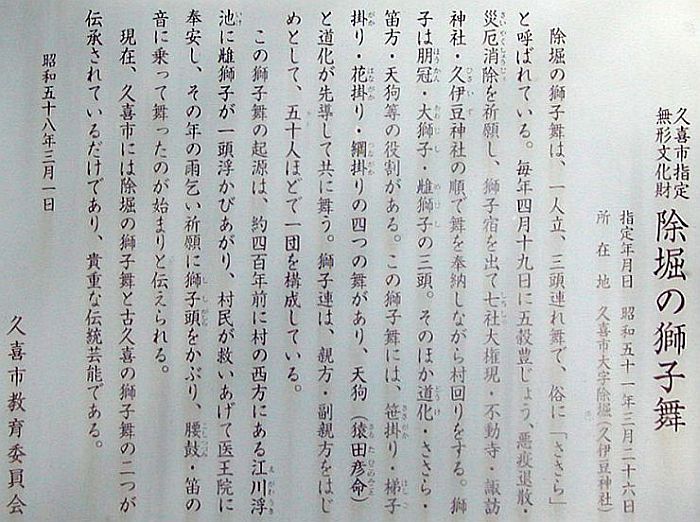 久喜市指定
無形文化財
除堀の獅子舞
指定年月日　昭和五十一年三月二十六日
所在地　久喜市大字除堀(久伊豆神社)
除堀の獅子舞は、一人立、三頭連れ舞で、俗に「ささら」
と呼ばれている。毎年四月十九日に五穀豊じょう、悪疫退散・
災厄消除を祈願し、獅子宿を出て七社大権現・不動寺・諏訪
神社・久伊豆神社の順で舞を奉納しながら村回りをする。獅
子は朋冠・大獅子・雌獅子の三頭。そのほか道化・ささら・
笛方・天狗等の役割がある。この獅子舞には、笹掛り・梯子
掛り・花掛り・綱掛りの四つの舞があり、天狗(猿田彦命)
と道化が先導して共に舞う。獅子連は、親方・副親方をはじ
めとして、五十人ほどで一団を構成している。
この獅子舞の起源は、約四百年前に村の西方にある江川浮
池に雌獅子が一頭浮かびあがり、村民が救いあげて医王院に
奉安し、その年の雨乞い祈願に獅子頭をかぶり、腰鼓・笛の
音に乗って舞ったのが始まりと伝えられる。
現在、久喜市には除堀の獅子舞と古久喜の獅子舞の二つが
伝承されているだけであり、貴重な伝統芸能である。
昭和五十八年三月一日
久喜市教育委員会